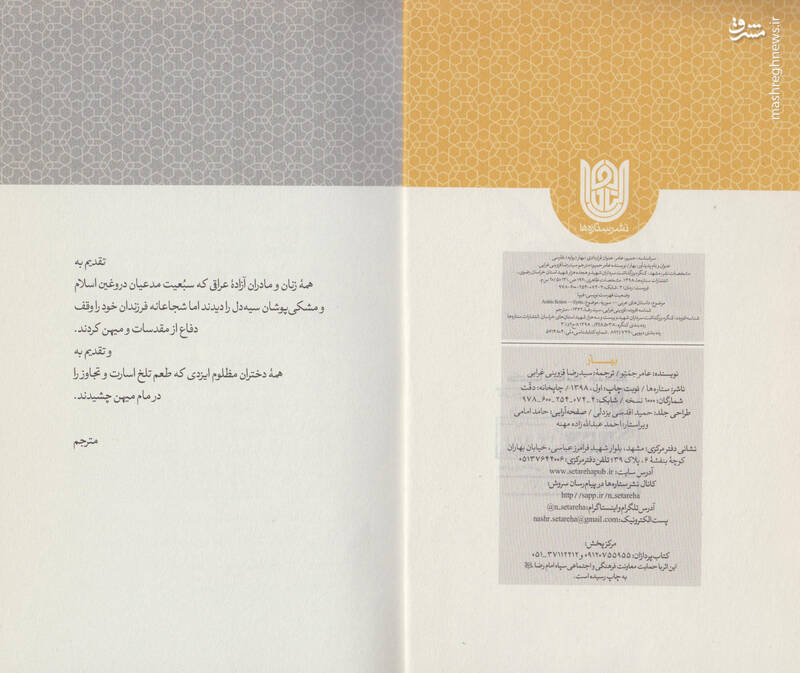 مشرق
mashreghnews.ir
نشر ستاره‌ها
بهار
نویسنده: عامر حمیّو / ترجمهٔ: سیدرضا قزوینی غرابی
ناشر: ستاره‌ها / نوبت چاپ: اول، ۱۳۹۸ / چاپخانه: دقّت
شمارگان: ۱۰۰۰ نسخه / شابک: ۴-۰۷۴-۲۵۴-۶۰۰-۹۷۸
طراحی جلد: حمید اقدسی یزدلی / صفحه‌آرایی: حامد امامی
ویراستار: احمد عبداله‌زاده مهنه
نشانی دفتر مرکزی: مشهد، بلوار شهید فرامرز عباسی، خیابان بهاران
کوچهٔ بنفشهٔ ۶، پلاک ۳۹؛ تلفن دفتر مرکزی: ۰۵۱۳۷۶۴۴۰۰۶
آدرس سایت: www.setarehapub.ir
کانال نشر ستاره‌ها در پیام‌رسان سروش:
http://sapp.ir/n_setareha
آدرس تلگرام و اینستاگرام: @n_setareha
پست الکترونیک: nashr.setareha@gmail.com
مرکز پخش:
کتاب‌پردازان: ۰۹۱۲۰۷۵۵۹۵۵ و ۳۷۱۱۲۲۱۲-۰۵۱
این اثر با حمایت معاونت فرهنگی و اجتماعی سپاه امام رضا
به چاپ رسیده است.
تقدیم به
همهٔ زنان و مادران آزادهٔ عراقی که سبُعیت مدعیان دروغین اسلام
و مشکی‌پوشان سیه‌دل را دیدند اما شجاعانه فرزندان خود را وقف
دفاع از مقدسات و میهن کردند.
و تقدیم به
همهٔ دختران مظلوم ایزدی که طعم تلخ اسارت و تجاوز را
در مام میهن چشیدند.
مترجم